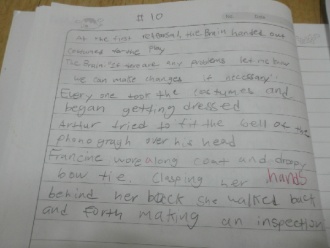 # 10
As the first rehearsal, the Brain handed out
costumes for the play
The Brain: "If there are any problems let me know
We can make changes if necessary"
Every one took the costumes and
began getting dressed
Arstur tried to fit the bell of the
phonograph over his head
Francine wore a long coat and dropy
bow tie. Clasping her hands
behind her back she walked back
and forth making an inspection